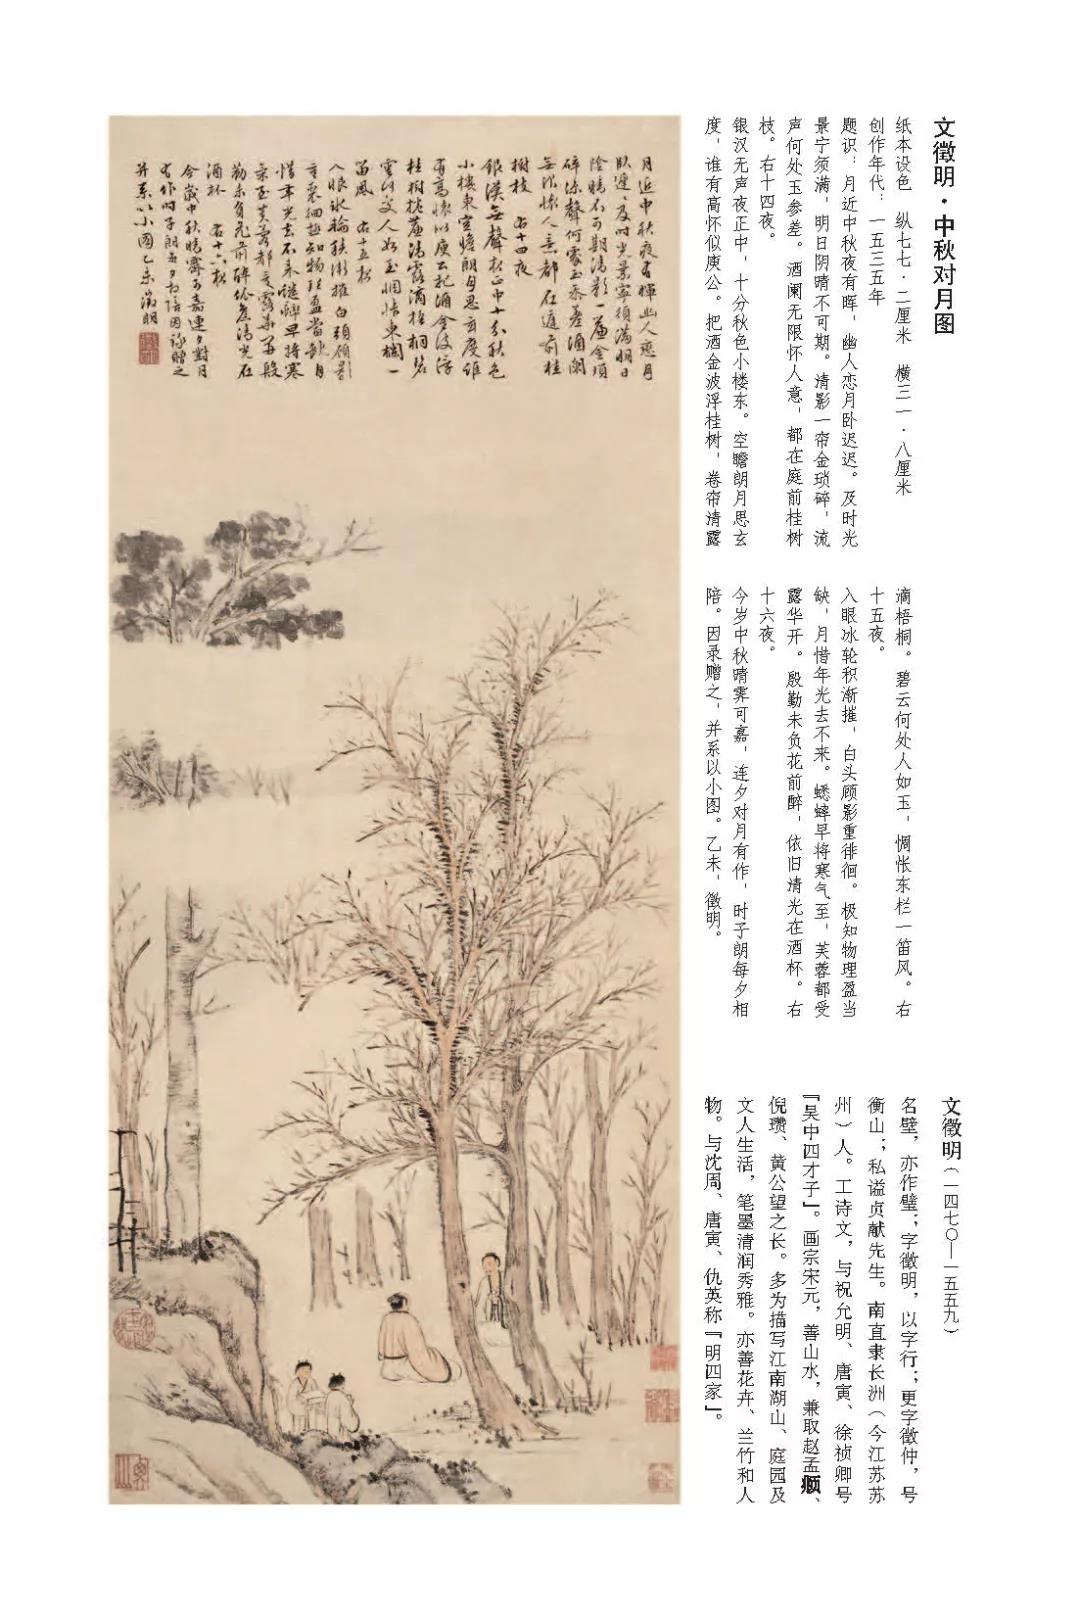 文徵明·中秋对月图
纸本设色　纵七七·二厘米　横三一·八厘米
创作年代：一五三五年
题识：月近中秋夜有晖，幽人恋月卧迟迟。及时光
景宁须满，明日阴晴不可期。清影一帘金琐碎，流
声何处玉参差。酒阑无限怀人意，都在庭前桂树
枝。右十四夜。
银汉无声夜正中，十分秋色小楼东。空瞻朗月思玄
度，谁有高怀似庾公。把酒金波浮桂树，卷帘清露
滴梧桐。碧云何处人如玉，惆怅东栏一笛风。右
十五夜。
入眼冰轮积渐摧，白头顾影重徘徊。极知物理盈当
缺，月惜年光去不来。蟋蟀早将寒气至，芙蓉都受
露华开。殷勤未负花前醉，依旧清光在酒杯。右
十六夜。
今岁中秋晴霁可嘉，连夕对月有作，时子朗每夕相
陪。因录赠之，并系以小图。乙未，徵明。
文徵明（一四七〇—一五五九）
名壁，亦作璧；字徵明，以字行；更字徵仲，号
衡山；私谥贞献先生。南直隶长洲（今江苏苏
州）人。工诗文，与祝允明、唐寅、徐祯卿号
『吴中四才子』。画宗宋元，善山水，兼取赵孟頫、
倪瓒、黄公望之长。多为描写江南湖山、庭园及
文人生活，笔墨清润秀雅。亦善花卉、兰竹和人
物。与沈周、唐寅、仇英称『明四家』。
月近中秋夜有暉幽人戀月
臥遲遲及時光景寧須滿明日
陰晴不可期清影一簾金瑣
碎流聲何處玉參差酒闌
無限懷人意都在庭前桂
樹枝　右十四夜
銀漢無聲夜正中十分秋色
小樓東空瞻朗月思玄度誰
有高懷似庾公把酒金波浮
桂樹捲簾清露滴梧桐碧
雲何處人如玉惆悵東欄一
笛風　右十五夜
入眼冰輪積漸摧白頭顧影
重裵徊極知物理盈當缺月
惜年光去不來蟋蟀早將寒
氣至芙蓉都受露華開殷
勤未負花前醉依舊清光在
酒杯　右十六夜
今歲中秋晴霽可嘉連夕對月
有作時子朗每夕相陪因錄贈之
并系以小圖乙未徵明